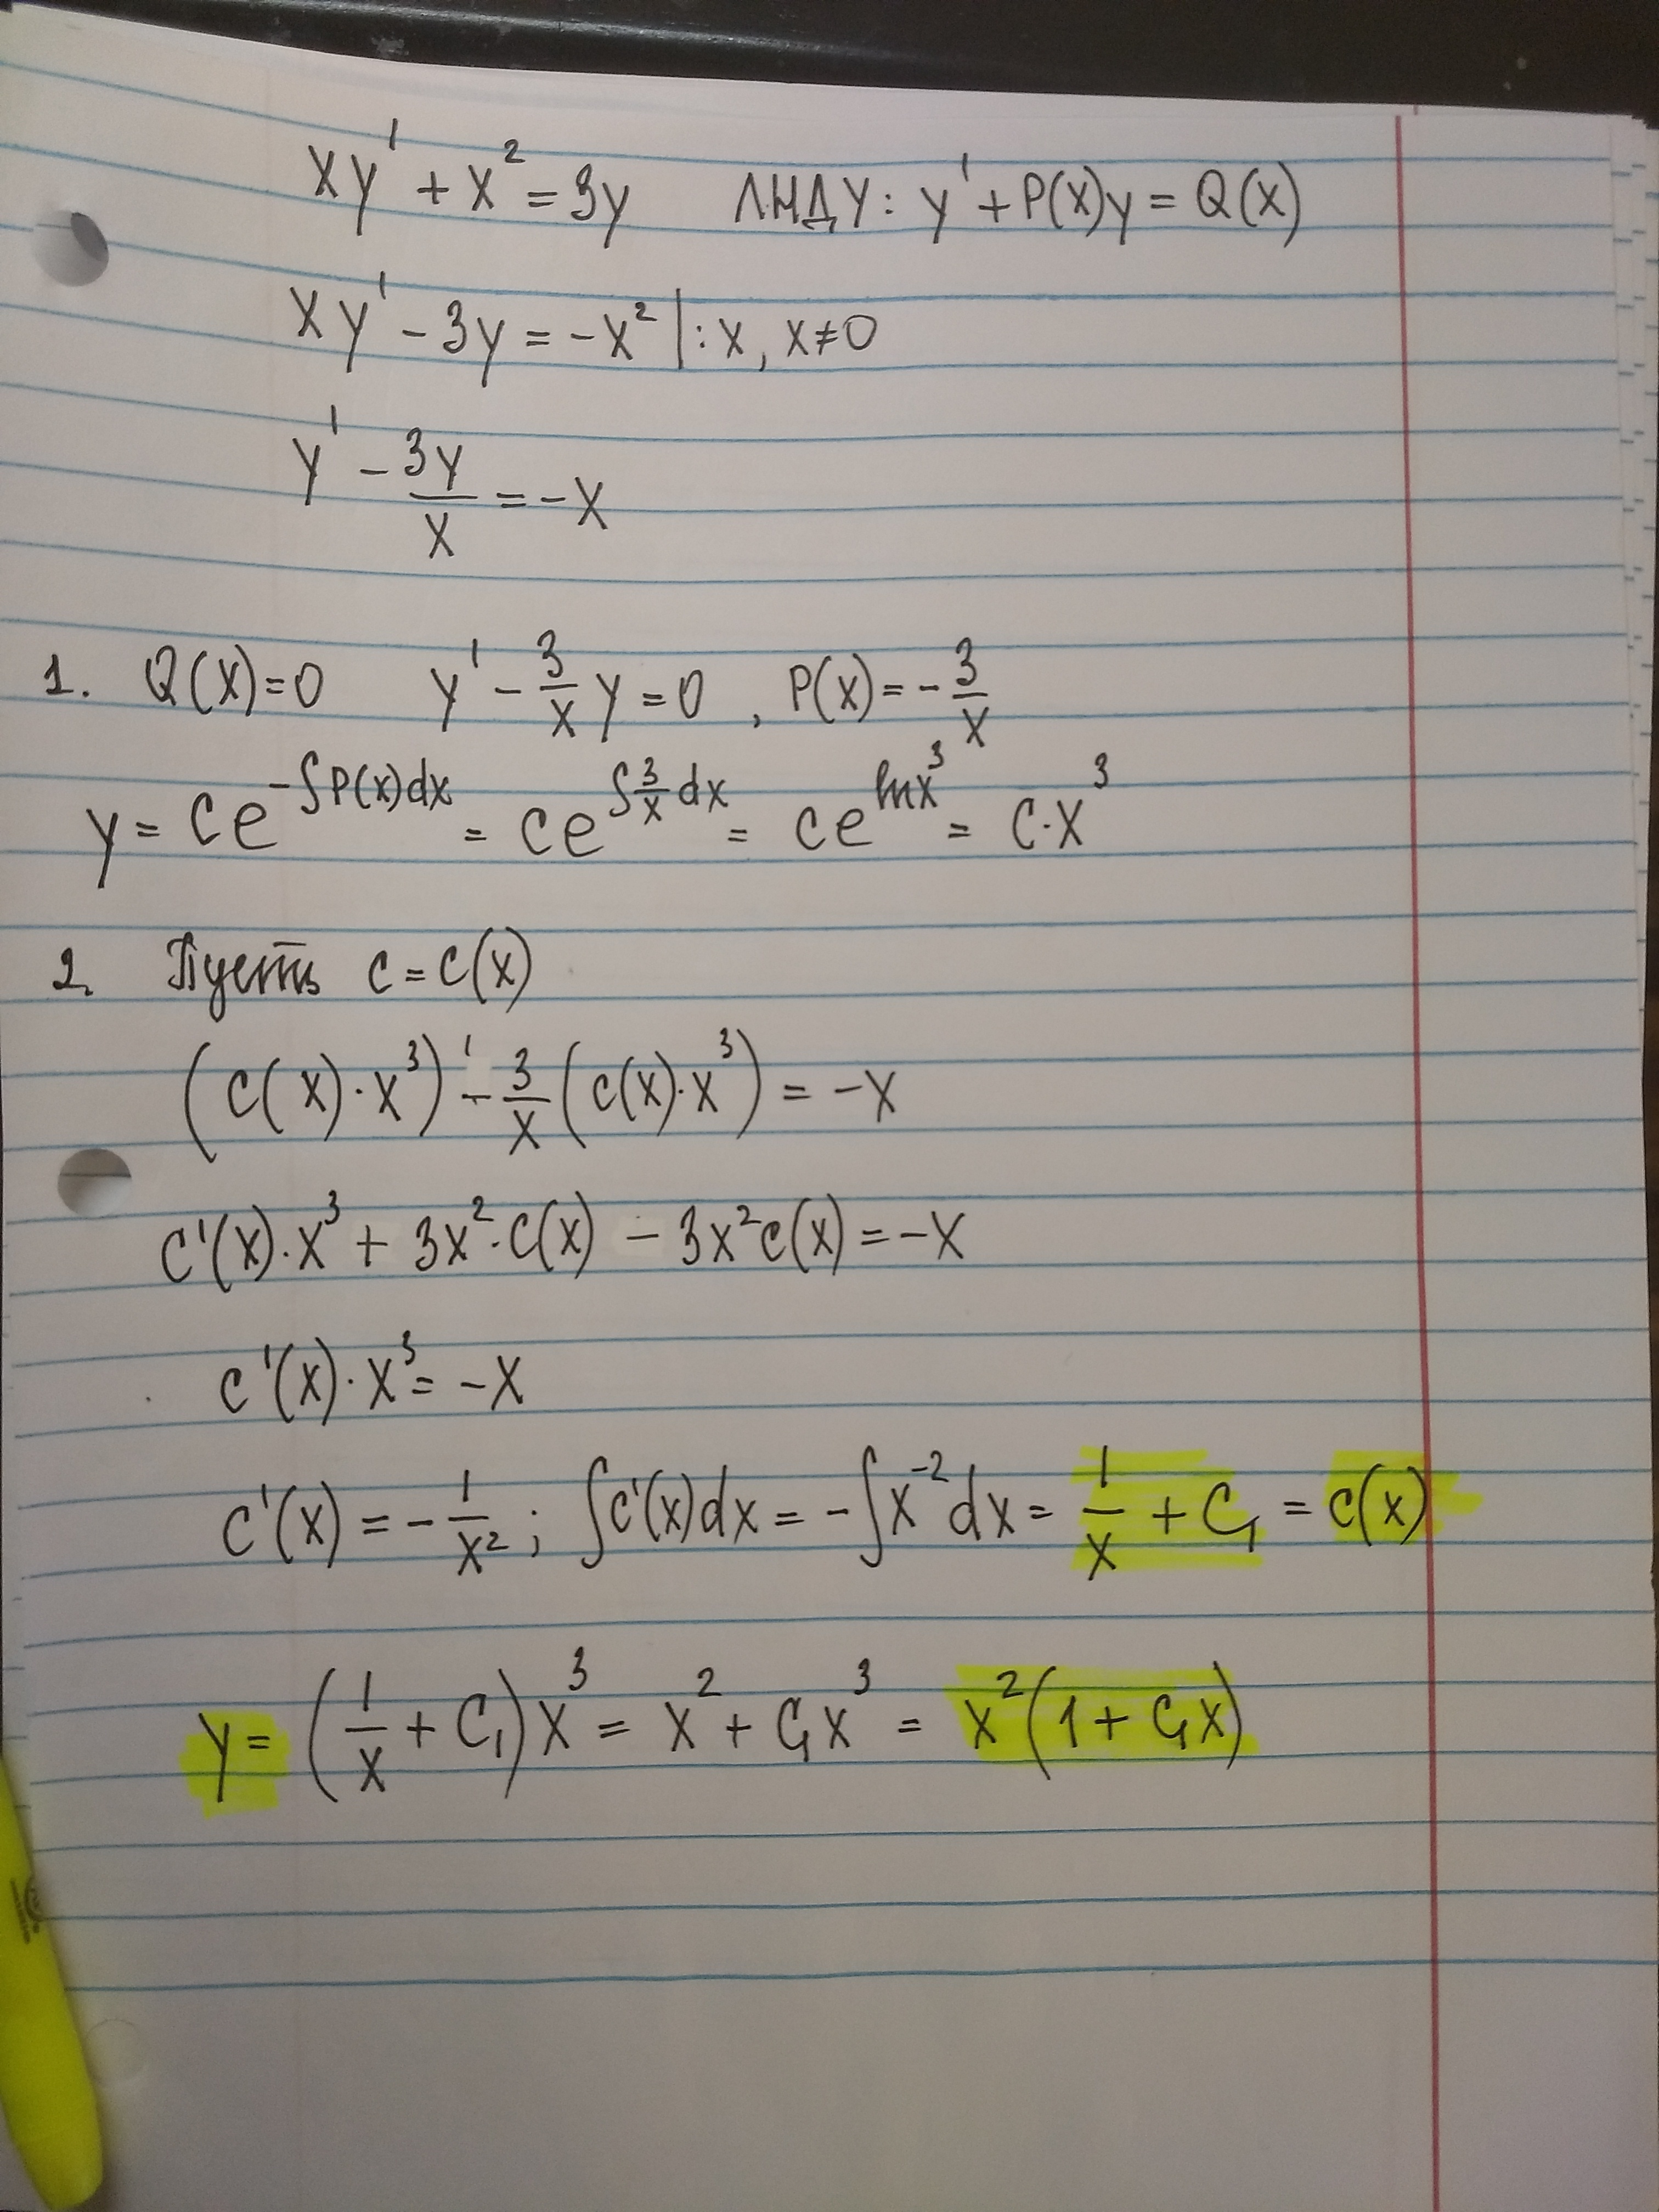 xy' + x² = 3y ЛНДУ: y' + P(x)y = Q(x)
xy' - 3y = -x² | : x, x≠0
y' - 3y/x = -x
1. Q(x)=0 y' - 3/x y = 0, P(x) = -3/x
y = Ce^(-∫P(x)dx) = Ce^(∫3/x dx) = Ce^(lnx³) = C·x³
2. Пусть C = C(x)
(C(x)·x³)' - 3/x (C(x)·x³) = -x
C'(x)·x³ + 3x²·C(x) - 3x²C(x) = -x
C'(x)·x³ = -x
C'(x) = -1/x²; ∫C'(x)dx = -∫x⁻²dx = 1/x + C₁ = C(x)
y = (1/x + C₁)x³ = x² + C₁x³ = x²(1 + C₁x)